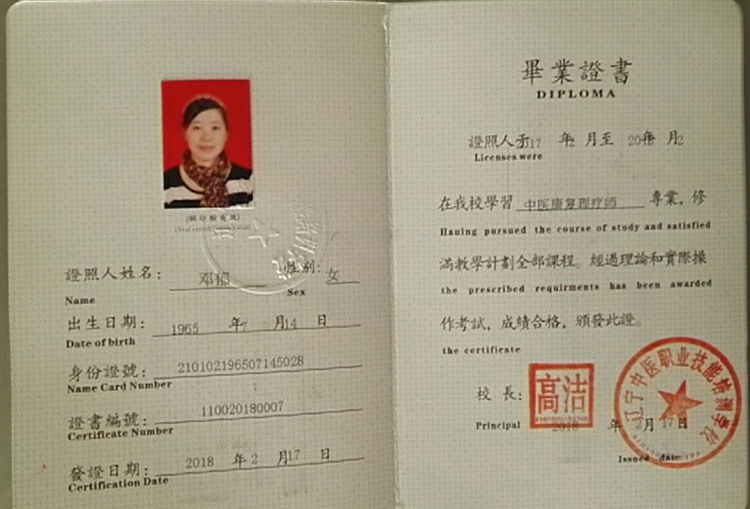 (鋼印騎看效)
證照人姓名: 邓郁 性別: 女
Name Sex
出生日期: 1965 年7 月14 日
Date of birth
身份證號: 210102196507145028
Name Card Number
證書編號: 110020180007
Certificate Number
發證日期: 2018 年2 月17 日
Certification Date
畢業證書
DIPLOMA
證照人于17 年2 月至 20 年 月2
Licenses were
在我校學習 中医康复理疗师 專業,修
Hauing pursued the course of study and satisfied
滿教學計劃全部課程。經過理論和實際操
the prescribed requirments has been awarded
作考試,成績合格,頒發此證。
the certificate
校長: 高洁
Principal 2018 年 2月17日
Issued date
辽宁中医职业技能培训学校